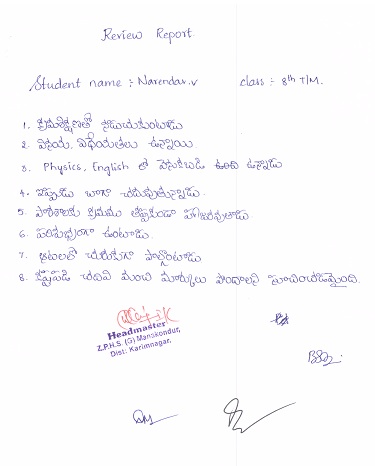 Review Report
Student name :- Narendar.v class :- 8th T/M.
1. క్రమశిక్షణతో నడుచుకుంటాడు
2. వినయ, విధేయతలు ఉన్నాయి
3. Physics, English లో వెనుకబడి ఉన్నాడు
4. ఇప్పుడు బాగా చదువుతున్నాడు.
5. పాఠశాలకు క్రమము తప్పకుండా హాజరవుతాడు
6. పరిశుభ్రంగా ఉంటాడు.
7. ఆటలలో చురుకుగా పాల్గొంటాడు
8. కష్టపడి చదివి మంచి మార్కులు పొందాలని సూచించడమైంది.
Headmaster
Z.P.H.S. (G) Manakondur,
Dist: Karimnagar,